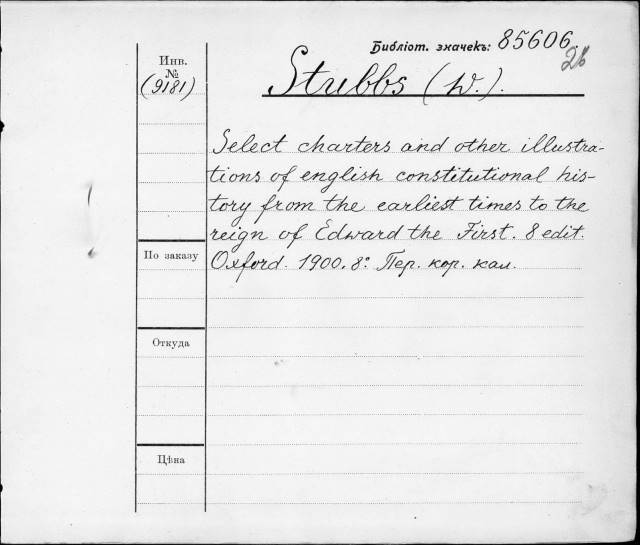 Библіот. значекъ: 85606.
26
Инв.
№
(9181)
Stubbs (W.).
Select charters and other illustra-
tions of english constitutional his-
tory from the earliest times to the
reign of Edward the First. 8 edit.
Oxford. 1900. 8º Пер. кор. кал.
По заказу
Откуда
Цѣна